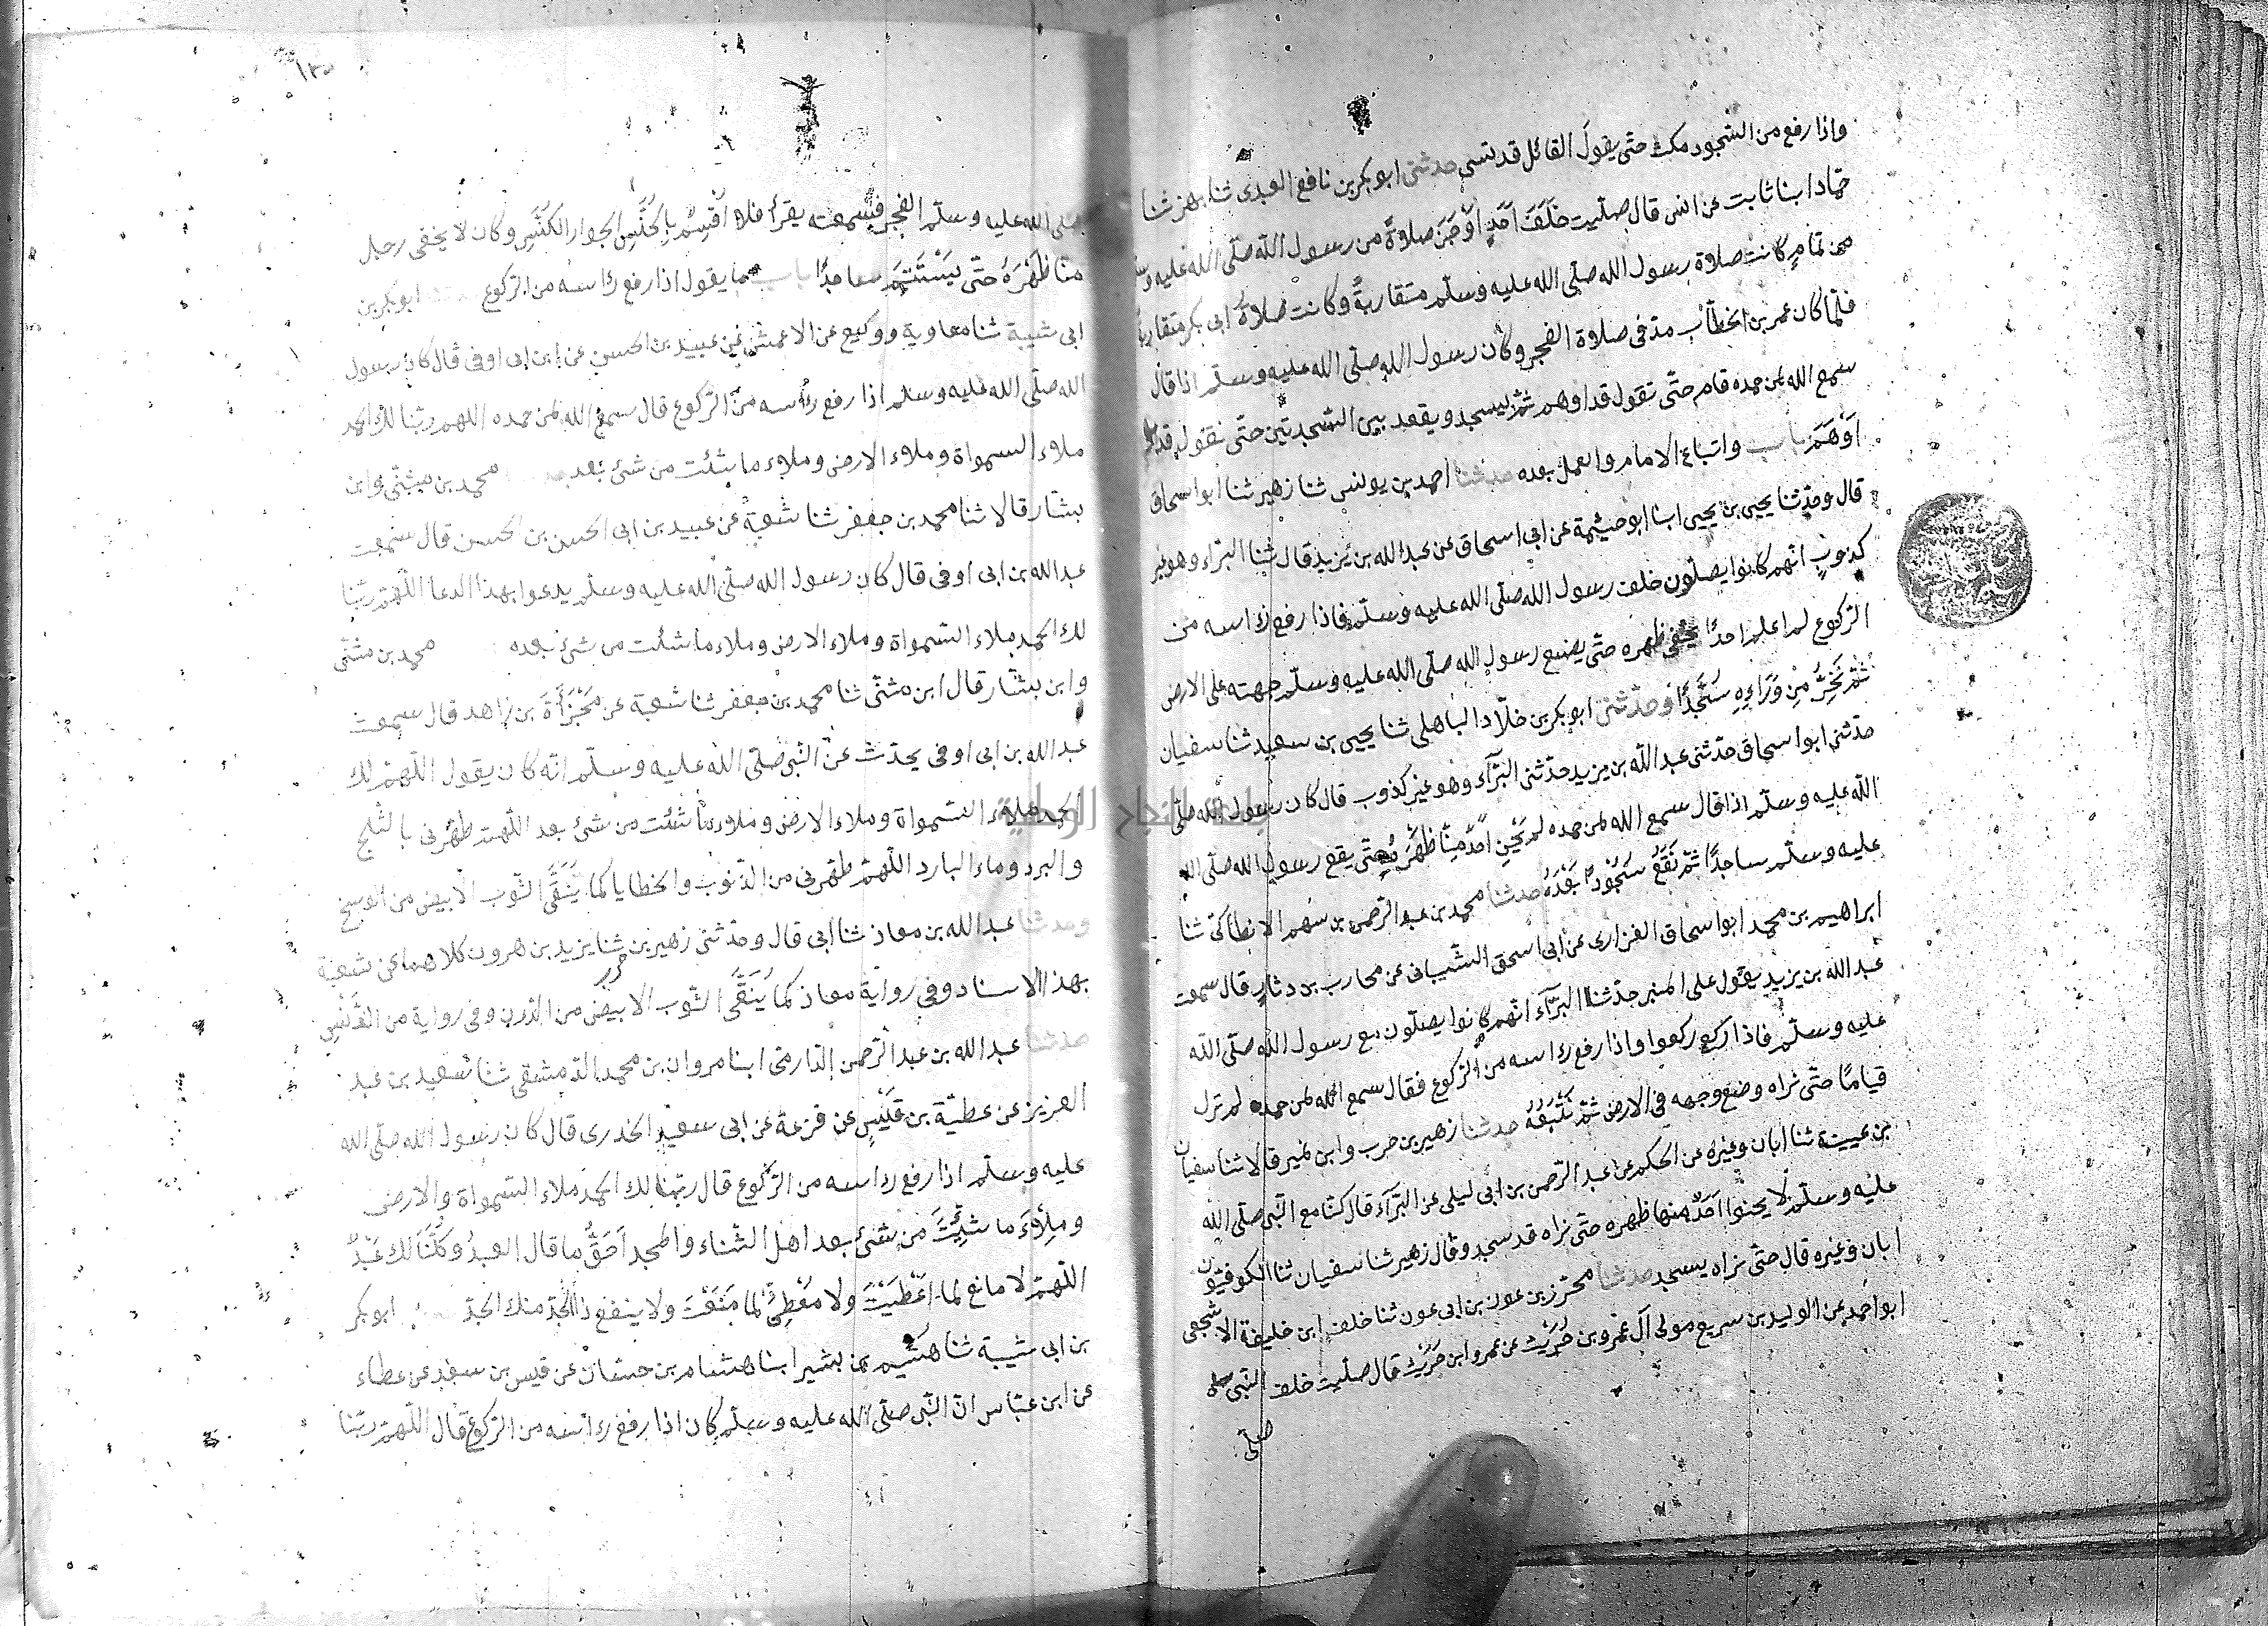 واذا رفع من السجود مكث حتى يقول القائل قد نسي حدثنى ابو بكر بن نافع العبدى ثنا بهز ثنا
حماد ابنا ثابت عن انس قال صليت خلف احد اوجز صلاة من رسول الله صلى الله عليه وسلم
من تمام كانت صلاة رسول الله صلى الله عليه وسلم متقاربة وكانت صلاة ابى بكر متقاربة
فلما كان عمر بن الخطاب مد فى صلاة الفجر وكان رسول الله صلى الله عليه وسلم اذا قال
سمع الله لمن حمده قام حتى نقول قد اوهم ثم يسجد ويقعد بين السجدتين حتى نقول قد
اَوْهَمَ باب واتباع الامام والعمل بعده حدثنا احمد بن يونس ثنا زهير ثنا ابو اسحاق
قال وحدثنا يحيى بن يحيى ابنا ابو خيثمة عن ابى اسحاق عن عبد الله بن يزيد قال ثنا البراء وهو غير
كذوب انهم كانوا يصلون خلف رسول الله صلى الله عليه وسلم فاذا رفع راسه من
الركوع لم اعلم احدا يحنى ظهره حتى يضع رسول الله صلى الله عليه وسلم جبهته على الارض
ثُمّ نَخِرُّ مِنْ وَرَاءِهِ سُجَّدًا وحدثنى ابو بكر بن خلاد الباهلى ثنا يحيى بن سعيد ثنا سفيان
حدثنى ابو اسحاق حدثنى عبد الله بن يزيد حدثنى البرآء وهو غير كذوب قال كان رسول الله صلى
الله عليه وسلم اذا قال سمع الله لمن حمده لم يَحْنِ احدٌ مِنّا ظَهْرَهُ حتى يقع رسول الله صلى الله
عليه وسلم ساجدًا ثم نَقَعُ سُجُودًا بَعْدَهُ حدثنا محمد بن عبد الرحمن بن سهم الانطاكى ثنا
ابراهيم بن محمد ابو اسحاق الفزارى عن ابى اسحق الشيبانى عن محارب بن دثار قال سمعت
عبد الله بن يزيد يقول على المنبر حدثنا البرآء انهم كانوا يصلون مع رسول الله صلى الله
عليه وسلم فاذا ركع ركعوا واذا رفع راسه من الركوع فقال سمع الله لمن حمده لم نزل
قيامًا حتى نراه وضع وجهه فى الارض ثم نَتْبَعُهُ حدثنا زهير بن حرب وابن نمير قالا ثنا سفيان
بن عيينة ثنا ابان وغيره عن الحكم عن عبد الرحمن بن ابى ليلى عن البرآء قال كنا مع النبى صلى الله
عليه وسلم لا يحنوا اَحَدٌ منا ظهره حتى نراه قد سجد وقال زهير ثنا سفيان ثنا الكوفيون
ابان وغيره قال حتى نراه يسجد حدثنا محرز بن عون بن ابى عون ثنا خلف ابن خليفة الاشجعى
ابو احمد عن الوليد بن سريع مولى آل عمرو بن حُرَيْث عن عمرو ابن حُرَيْث قال صليت خلف النبى
صلى
صلى الله عليه وسلم الفجر فسمعته يقرأ فلا اُقْسِمُ بِالخُنَّسِ الجوار الكُنَّسِ وكان لا يحنى رجل
منا ظَهْرَهُ حتى يَسْتَتِمَّ ساجدًا باب ما يقول اذا رفع راسه من الركوع ابو بكر بن
ابى شيبة ثنا معاوية ووكيع عن الاعمش عن عبيد بن الحسن عن ابن ابى اوفى قال كان رسول
الله صلى الله عليه وسلم اذا رفع راسه من الركوع قال سمع الله لمن حمده اللهم ربنا لك الحمد
ملاء السمواة وملاء الارض وملاء ما شئت من شئ بعد محمد بن مثنى وابن
بشار قالا ثنا محمد بن جعفر ثنا شعبة عن عبيد بن ابى الحسن بن الحسن قال سمعت
عبد الله بن ابى اوفى قال كان رسول الله صلى الله عليه وسلم يدعوا بهذا الدعا اللهم ربنا
لك الحمد ملاء السمواة وملاء الارض وملاء ما شئت من شئ بعده محمد بن مثنى
وابن بشار قال ابن مثنى ثنا محمد بن جعفر ثنا شعبة عن مَجْزَأَةَ بن زاهد قال سمعت
عبد الله بن ابى اوفى يحدث عن النبى صلى الله عليه وسلم انه كان يقول اللهم لك
الحمد ملاء السمواة وملاء الارض وملاء ما شئت من شئ بعد اللهم طهرنى بالثلج
والبرد وماء البارد اللهم طهرنى من الذنوب والخطايا كما يُنَقَّى الثوب الابيض من الوسخ
وحدثنا عبد الله بن معاذ ثنا ابى قال وحدثنى زهير بن ثنا يزيد بن هرون كلاهما عن شعبة
بهذا الاسناد وفى رواية معاذ كما يُنَقَّى الثوب الابيض من الدرن وفى رواية من الدَّنَسِ
حدثنا عبد الله بن عبد الرحمن الدارمى ابنا مروان بن محمد الدمشقى ثنا سعيد بن عبد
العزيز عن عطية بن قَيْسٍ عن قزعة عن ابى سعيد الخدرى قال كان رسول الله صلى الله
عليه وسلم اذا رفع راسه من الركوع قال ربنا لك الحمد ملاء السمواة والارض
ومِلاءَ ما شِئْتَ من شئ بعد اهل الثناء والمجد اَحَقُّ ما قال العبدُ وكُلُّنَا لك عَبْدٌ
اللهم لا مانع لما اَعْطَيْتَ ولا مُعْطِىَ لما مَنَعْتَ ولا ينفع ذا الجد منك الجد ابو بكر
بن ابى شيبة ثنا هُشَيم بن بشير ابنا هشام بن حسان عن قيس بن سعد عن عطاء
عن ابن عباس ان النبى صلى الله عليه وسلم كان اذا رفع راسه من الركوع قال اللهم ربنا